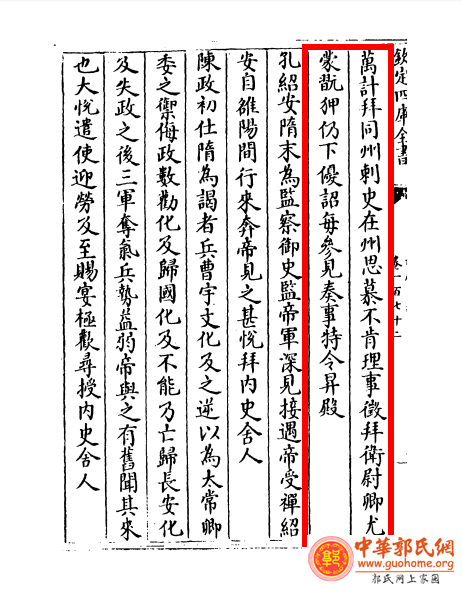 欽定四庫全書
卷一百七十二
萬計拜同州刺史在州思慕不肯理事徴拜衛尉卿尤
蒙翫狎仍下優詔每參見奏事特令昇殿
孔紹安隋末為監察御史監帝軍深見接遇帝受禪紹
安自雒陽間行來奔帝見之甚悅拜内史舍人
陳政初仕隋為謁者兵曹宇文化及之逆以為太常卿
委之禦侮政數勸化及歸國化及不能乃亡歸長安化
及失政之後三軍奪氣兵勢益弱帝與之有舊聞其來
也大悅遣使迎勞及至賜宴極歡尋授内史舍人
中華郭氏網
www.guohome.org
郭氏网上家园